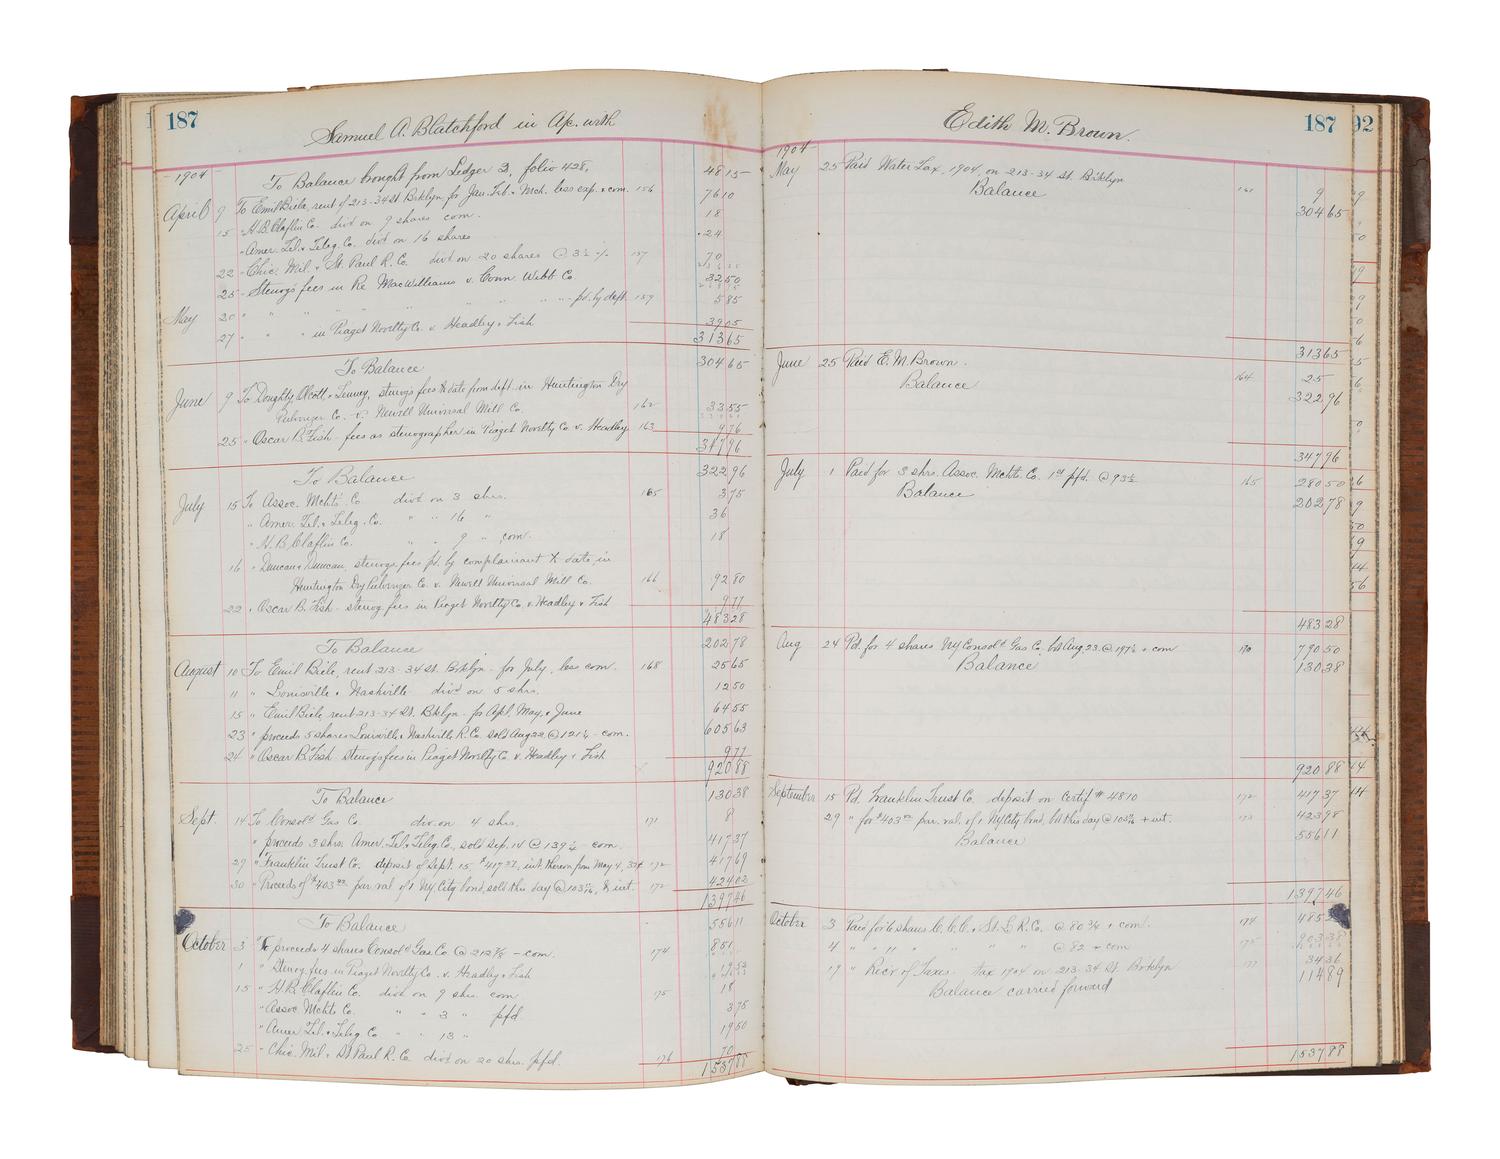 187
Samuel A. Blatchford in a/c. with
1904
To Balance brought from Ledger 3, folio 428, 4815
April 9 To Emil Biele, rent of 213-34 St. Brklyn, for Jan. Feb. & Mch. less exp. & com. 156 7610
15 " H.B. Claflin Co. divd on 9 shares com. 18
" Amer. Tel. & Teleg. Co. divd on 16 shares 24
22 " Chic. Mil. & St. Paul R. Co. divd on 20 shares @ 3½ % 157 70
25 " Stenog's fees in Re MacWilliams v. Conn. Webb Co 3250
May 20 " " " " " " " - pd. by deft. 159 585
27 " " " in Piaget Novelty Co. v. Headley & Fish 3905
31365
To Balance 30465
June 9 To Doughty, Olcott, & Tenney, stenog's fees to date from deft. in Huntington Dry
Pulverizer Co. v. Newell Universal Mill Co. 162 3355
25 " Oscar B. Fish - fees as stenographer in Piaget Novelty Co. v. Headley 163 976
34796
To Balance 32296
July 15 To Assoc. Mchts. Co divd on 3 shrs. 165 375
" Amer. Tel. & Teleg. Co. " " 16 " 36
" H.B. Claflin Co. " " 9 " com. 18
16 " Duncan & Duncan, stenogs. fees pd. by complainant to date, in
Huntington Dry Pulverizer Co. v. Newell Universal Mill Co. 166 9280
22 " Oscar B. Fish - stenog. fees in Piaget Novelty Co. v. Headley & Fish 977
48328
To Balance 20278
August 10 To Emil Biele, rent 213-34 St. Brklyn - for July, less com. 168 2565
11 " Louisville & Nashville divd on 5 shrs. 1250
15 " Emil Biele rent 213-34 St. Bklyn - for Apl. May, & June 6455
23 " proceeds 5 shares Louisville & Nashville R. Co. sold Aug 22 @ 121¼ - com. 60563
24 " Oscar B. Fish - stenog's fees in Piaget Novelty Co. v. Headley & Fish 977
92088
To Balance 13038
Sept. 14 To Consold Gas Co. div. on 4 shs. 171 8
" proceeds 3 shrs. Amer. Tel. & Teleg. Co., sold Sep. 14 @ 139¼ - com. 41737
29 " Franklin Trust Co. deposit of Sept. 15, $417.37, int. thereon from May 4, 32¢ 172 41769
30 " Proceeds of $403 par val of 1 NY City bond, sold this day @ & int. 172 42402
139746
To Balance 55611
October 3 To proceeds 4 shares Consold Gas Co. @ 212⅞ - com. 174 851
1 " Stenog. fees in Piaget Novelty Co. v. Headley & Fish
15 " H.B. Claflin Co. divd on 9 shs. com 175 18
" Assoc. Mchts Co " " 3 " pfd 375
" Amer Tel. & Teleg. Co " " 13 " 1950
25 " Chic. Mil. & St Paul R. Co. divd on 20 shrs. pfd. 176 70
153788
Edith M. Brown.
187
92
1904
May 25 Paid Water Tax, 1904, on 213-34 St. Brklyn 161 9
Balance 30465
31365
June 25 Paid E. M. Brown. 164 25
Balance 32296
34796
July 1 Paid for 3 shrs. Assoc. Mchts. Co. 1st pfd. @ 93½ 165 28050
Balance 20278
48328
Aug 24 Pd. for 4 shares NY Consold Gas Co. bt Aug. 23 @ 197½ & com 170 79050
Balance 13038
92088
September 15 Pd. Franklin Trust Co. deposit on Certif # 4810 172 41737
29 " for $403 par. val. of 1 NY City bond, bt this day @ & int. 173 42398
Balance 55611
139746
October 3 Paid for 6 shares C.C.C. & St. L R. Co. @ 80¾ & com. 174
4 " " " " " " " @ 82 & com 175
19 " Recr of Taxes - tax 1904 on 213-34 St. Brklyn 177 3436
Balance carried forward 11489
153788